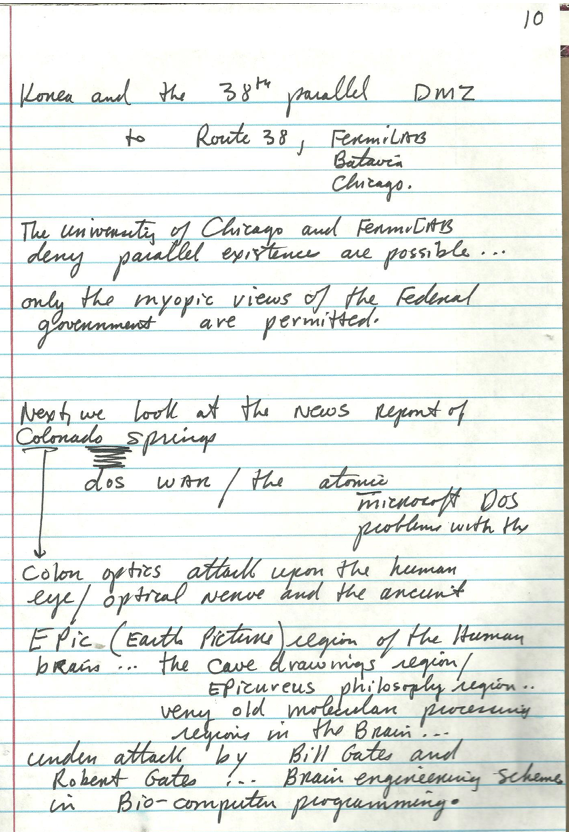 10
Korea and the 38th parallel DMZ
to Route 38, FermiLAB
Batavia
Chicago.
The University of Chicago and FermiLAB
deny parallel existence are possible...
only the myopic views of the Federal
government are permitted.
Next, we look at the news report of
Colorado Springs
dos WAR / the atomic
microsoft DOS
problems with the
Colon optics attack upon the human
eye/ optical nerve and the ancient
EPic (Earth Picture) region of the Human
brain... the cave drawings region/
EPicureus philosophy region..
very old molecular processing
regions in the Brain...
under attack by Bill Gates and
Robert Gates ... Brain engineering schemes
in Bio-computer programming.